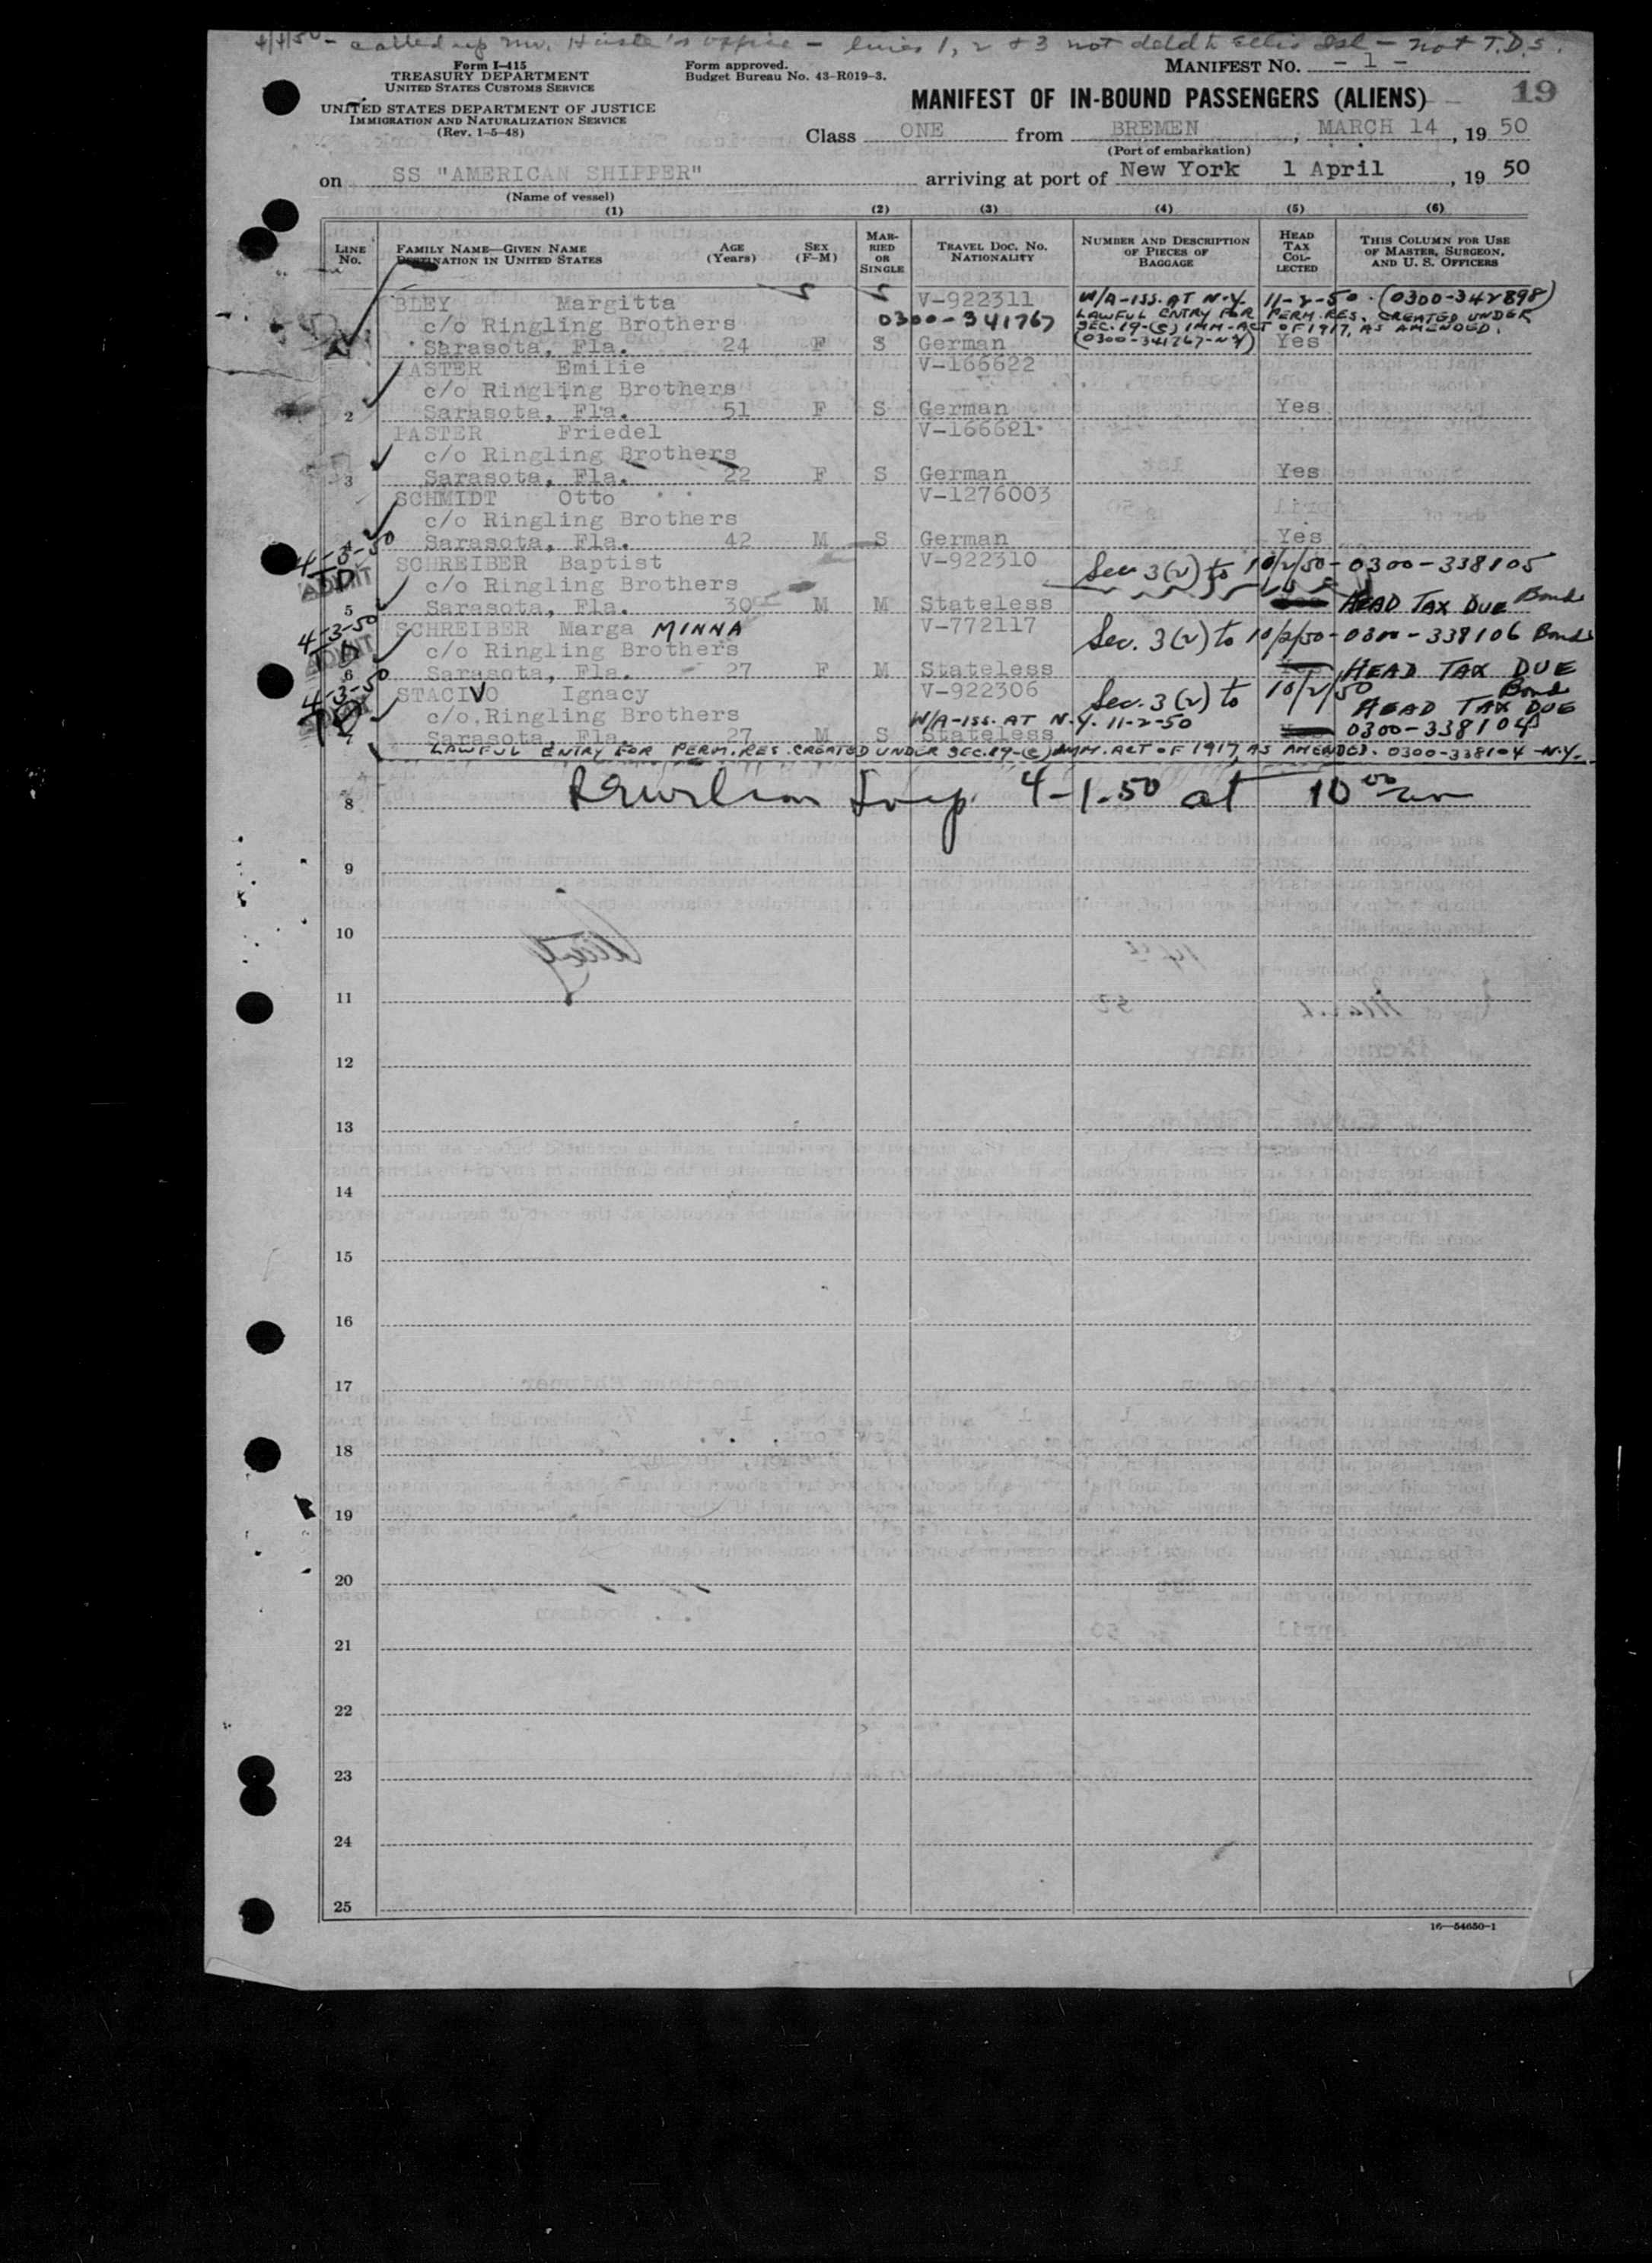 4/4/50 - called up Mr. office - lines 1, 2 & 3 not Ellis Isl - not T.D.S.
Form I-415
TREASURY DEPARTMENT
UNITED STATES CUSTOMS SERVICE
UNITED STATES DEPARTMENT OF JUSTICE
IMMIGRATION AND NATURALIZATION SERVICE
(Rev. 1-5-48)
Form approved.
Budget Bureau No. 43-R019-3.
MANIFEST NO. - 1 -
MANIFEST OF IN-BOUND PASSENGERS (ALIENS) 19
Class ONE from BREMEN, MARCH 14, 19 50
(Port of embarkation)
on SS "AMERICAN SHIPPER" arriving at port of New York 1 April, 19 50
(Name of vessel)
(1) (2) (3) (4) (5) (6)
LINE NO. FAMILY NAME—GIVEN NAME DESTINATION IN UNITED STATES AGE (Years) SEX (F-M) MARRIED OR SINGLE TRAVEL DOC. NO. NATIONALITY NUMBER AND DESCRIPTION OF PIECES OF BAGGAGE HEAD TAX COLLECTED THIS COLUMN FOR USE OF MASTER, SURGEON, AND U. S. OFFICERS
BLEY Margitta V-922311 W/A-ISS. AT N.Y. 11-2-50. (0300-342898)
c/o Ringling Brothers 0300-341767 LAWFUL ENTRY FOR PERM. RES. CREATED UNDER
SEC. 19-(c) IMM-ACT OF 1917, AS AMENDED.
Sarasota, Fla. 24 F S German (0300-341767-NY) Yes
PASTER Emilie V-166622
c/o Ringling Brothers
2 Sarasota, Fla. 51 F S German Yes
PASTER Friedel V-166621
c/o Ringling Brothers
3 Sarasota, Fla. 22 F S German Yes
SCHMIDT Otto V-1276003
c/o Ringling Brothers
4 Sarasota, Fla. 42 M S German Yes
4-3-50 SCHREIBER Baptist V-922310 Sec 3(2) to 10/2/50-0300-338105
TD ADMIT c/o Ringling Brothers
5 Sarasota, Fla. 30 M M Stateless HEAD TAX DUE Bond
4-3-50 SCHREIBER Marga MINNA V-772117 Sec. 3(2) to 10/2/50-0300-338106 Bond
TD ADMIT c/o Ringling Brothers
6 Sarasota, Fla. 27 F M Stateless Yes HEAD TAX DUE
4-3-50 STACIVO Ignacy V-922306 Sec. 3(2) to 10/2/50 Bond
TD c/o Ringling Brothers W/A-ISS. AT N.Y. 11-2-50 HEAD TAX DUE
7 Sarasota, Fla. 27 M S Stateless Yes 0300-338104
LAWFUL ENTRY FOR PERM. RES. CREATED UNDER SEC. 19-(c) IMM. ACT OF 1917, AS AMENDED. 0300-338104-N.Y.
8 Insp. 4-1-50 at 10 00 am
9
10
11
12
13
14
15
16
17
18
19
20
21
22
23
24
25
16—54650-1